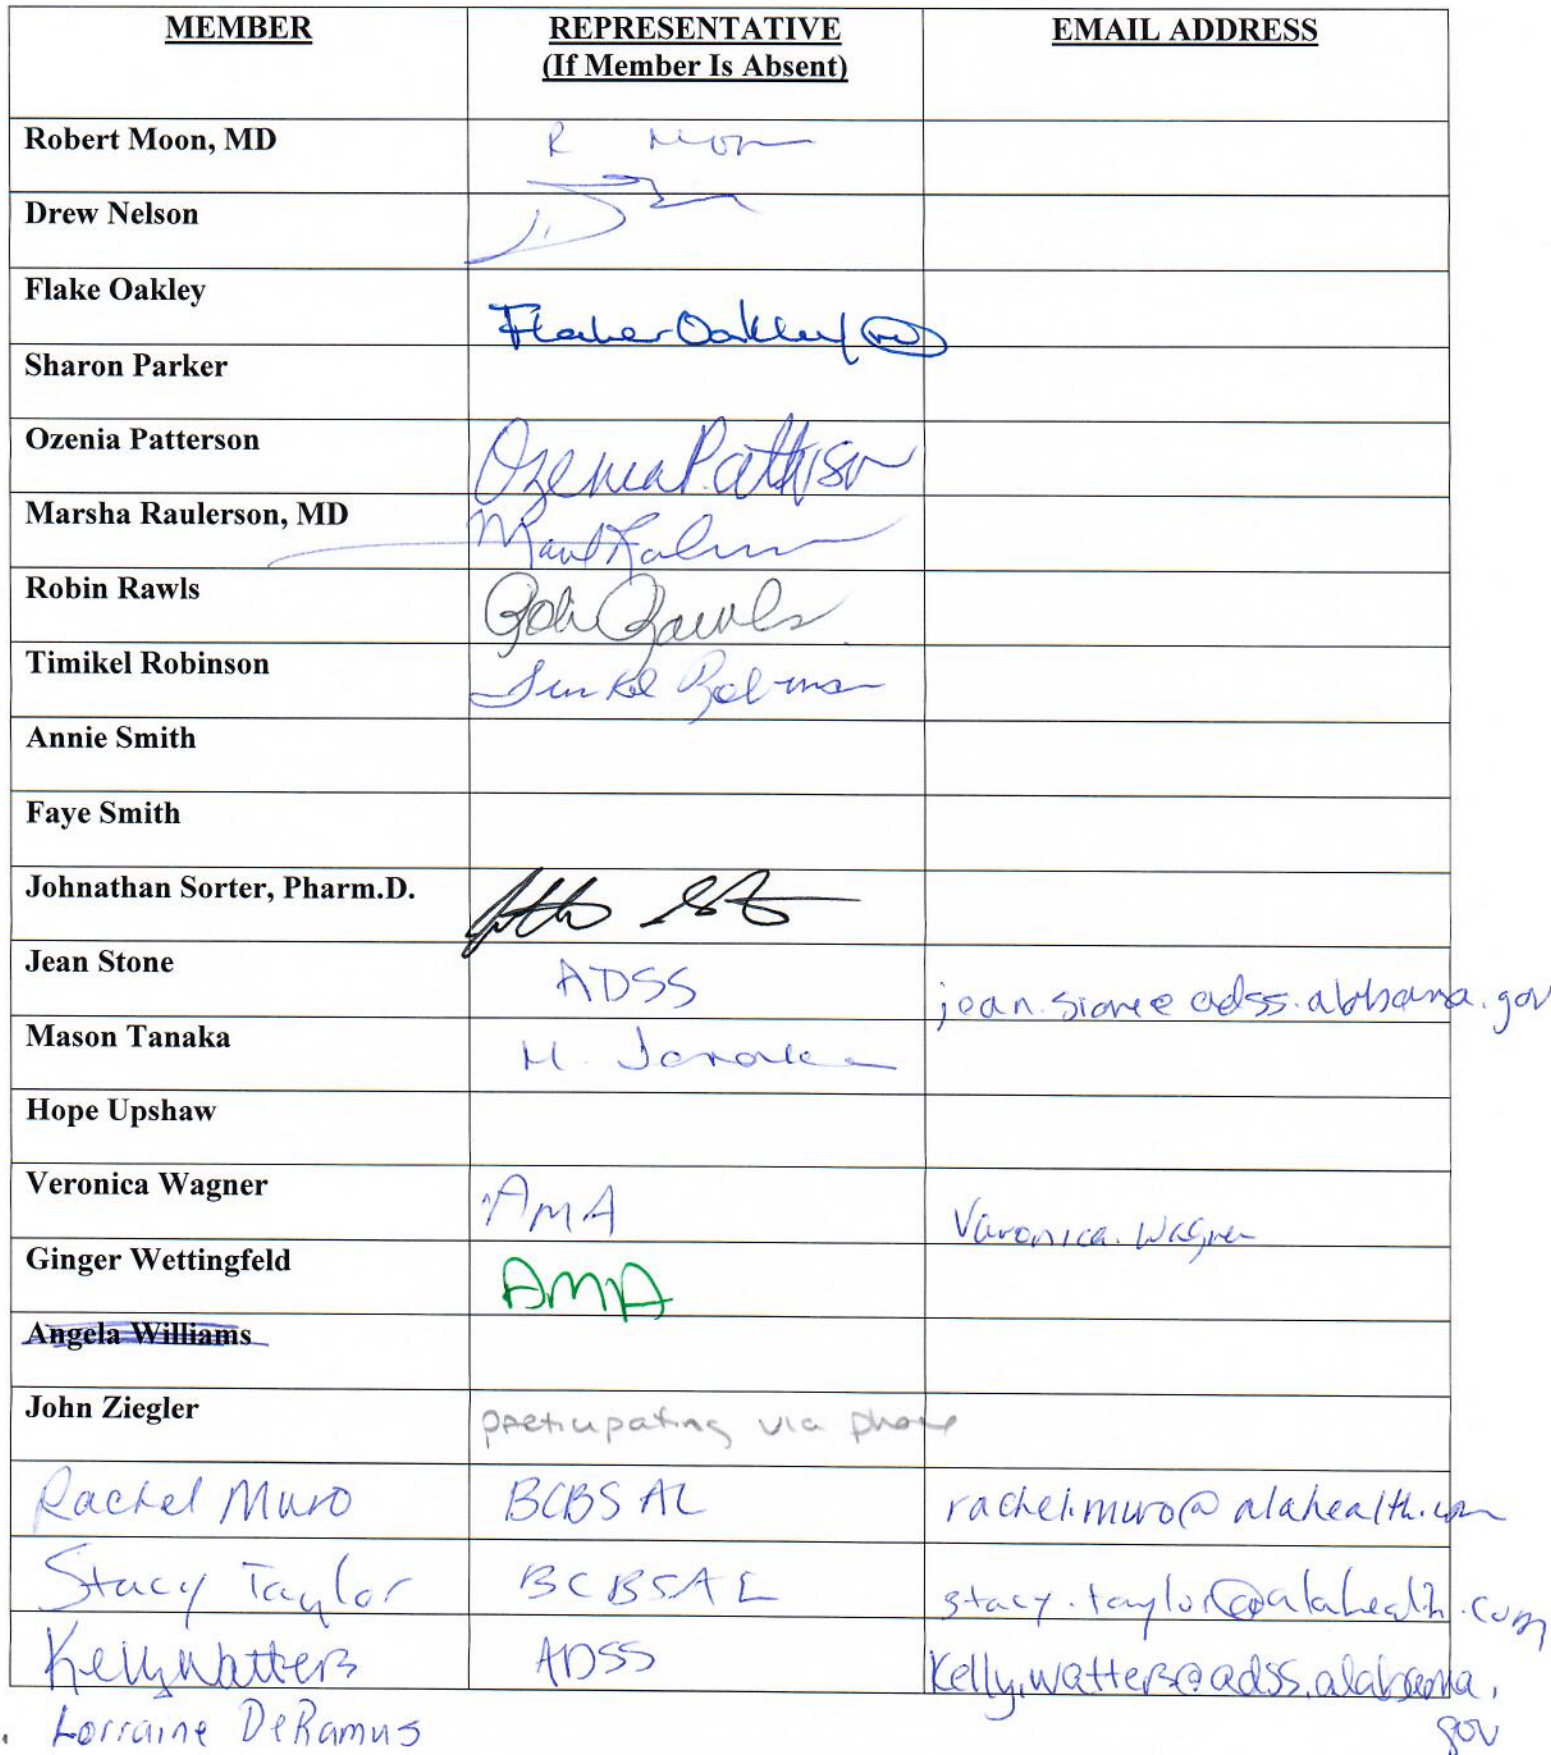 MEMBER REPRESENTATIVE EMAIL ADDRESS
(If Member Is Absent)
Robert Moon, MD R Moon
Drew Nelson
Flake Oakley Flake Oakley MD
Sharon Parker
Ozenia Patterson Ozenia Patterson
Marsha Raulerson, MD
Robin Rawls Robin Rawls
Timikel Robinson Timikel Robinson
Annie Smith
Faye Smith
Johnathan Sorter, Pharm.D.
Jean Stone ADSS jean.stone@adss.alabama.gov
Mason Tanaka M. Tanaka
Hope Upshaw
Veronica Wagner AMA Veronica.Wagner
Ginger Wettingfeld AMA
Angela Williams
John Ziegler participating via phone
Rachel Muro BCBS AL rachel.muro@alahealth.com
Stacy Taylor BCBSAL stacy.taylor@alahealth.com
Kelly Watters ADSS Kelly.watters@adss.alabama.
Lorraine DeRamus gov